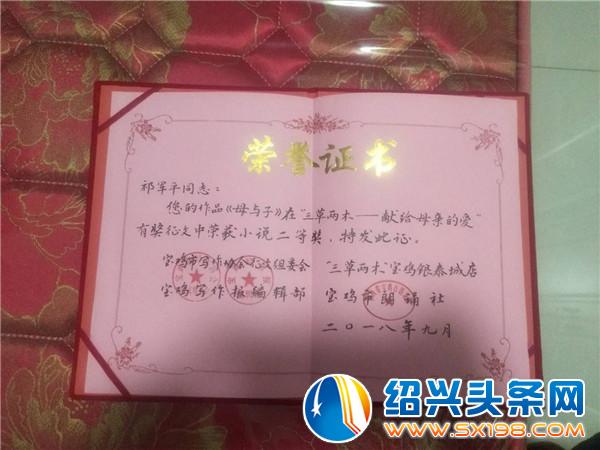 荣誉证书
祁军平同志：
您的作品《母与子》在“三草两木——献给母亲的爱”
有奖征文中荣获小说二等奖，特发此证。
宝鸡市写作协会征文组委会 “三草两木”宝鸡银泰城店
宝鸡写作报编辑部 宝鸡市朗诵社
二〇一八年九月
绍兴头条网
www.sx198.com